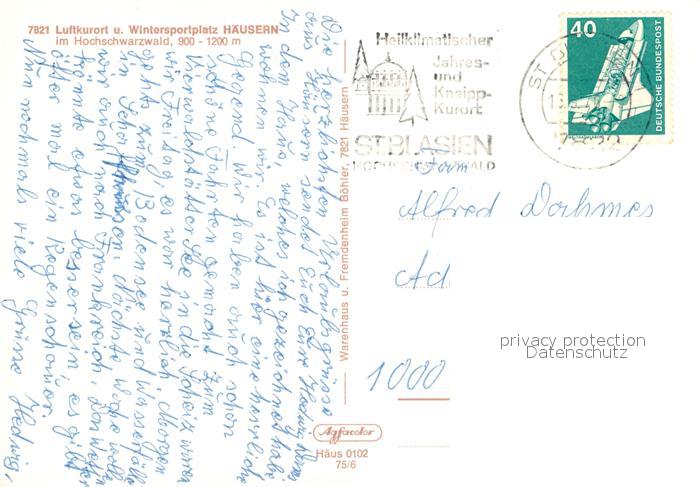 7821 Luftkurort u. Wintersportplatz HÄUSERN
im Hochschwarzwald, 900 - 1200 m
Die herzlichsten Urlaubsgrüsse
aus Häusern sendet Euch Eure Hedwig
In dem Haus, welches ich gezeichnet habe,
wohnen wir. Es ist hier eine herrliche
Gegend. Wir haben auch schon
schöne Fahrten gemacht zum
Vierwaldstätter See in die Schweiz waren
wir Freitag, es war herrlich, Morgen
geht's zum Bodensee und Wasserfälle
Nächste Woche wollen
wir auch nach Frankreich, das Wetter
könnte etwas besser sein, es gibt
öfter mal ein Regenschauer.
Nun nochmals viele Grüsse Hedwig,
Warenhaus u. Fremdenheim Böhler, 7821 Häusern
Agfacolor
Häus 0102
75/6
Heilklimatischer
Jahres-
und
Kneipp-
Kurort
ST. BLASIEN
HOCHSCHWARZWALD
ST. B
7822
40
DEUTSCHE BUNDESPOST
Fam
Alfred Dahmes
Ad
1000
privacy protection
Datenschutz